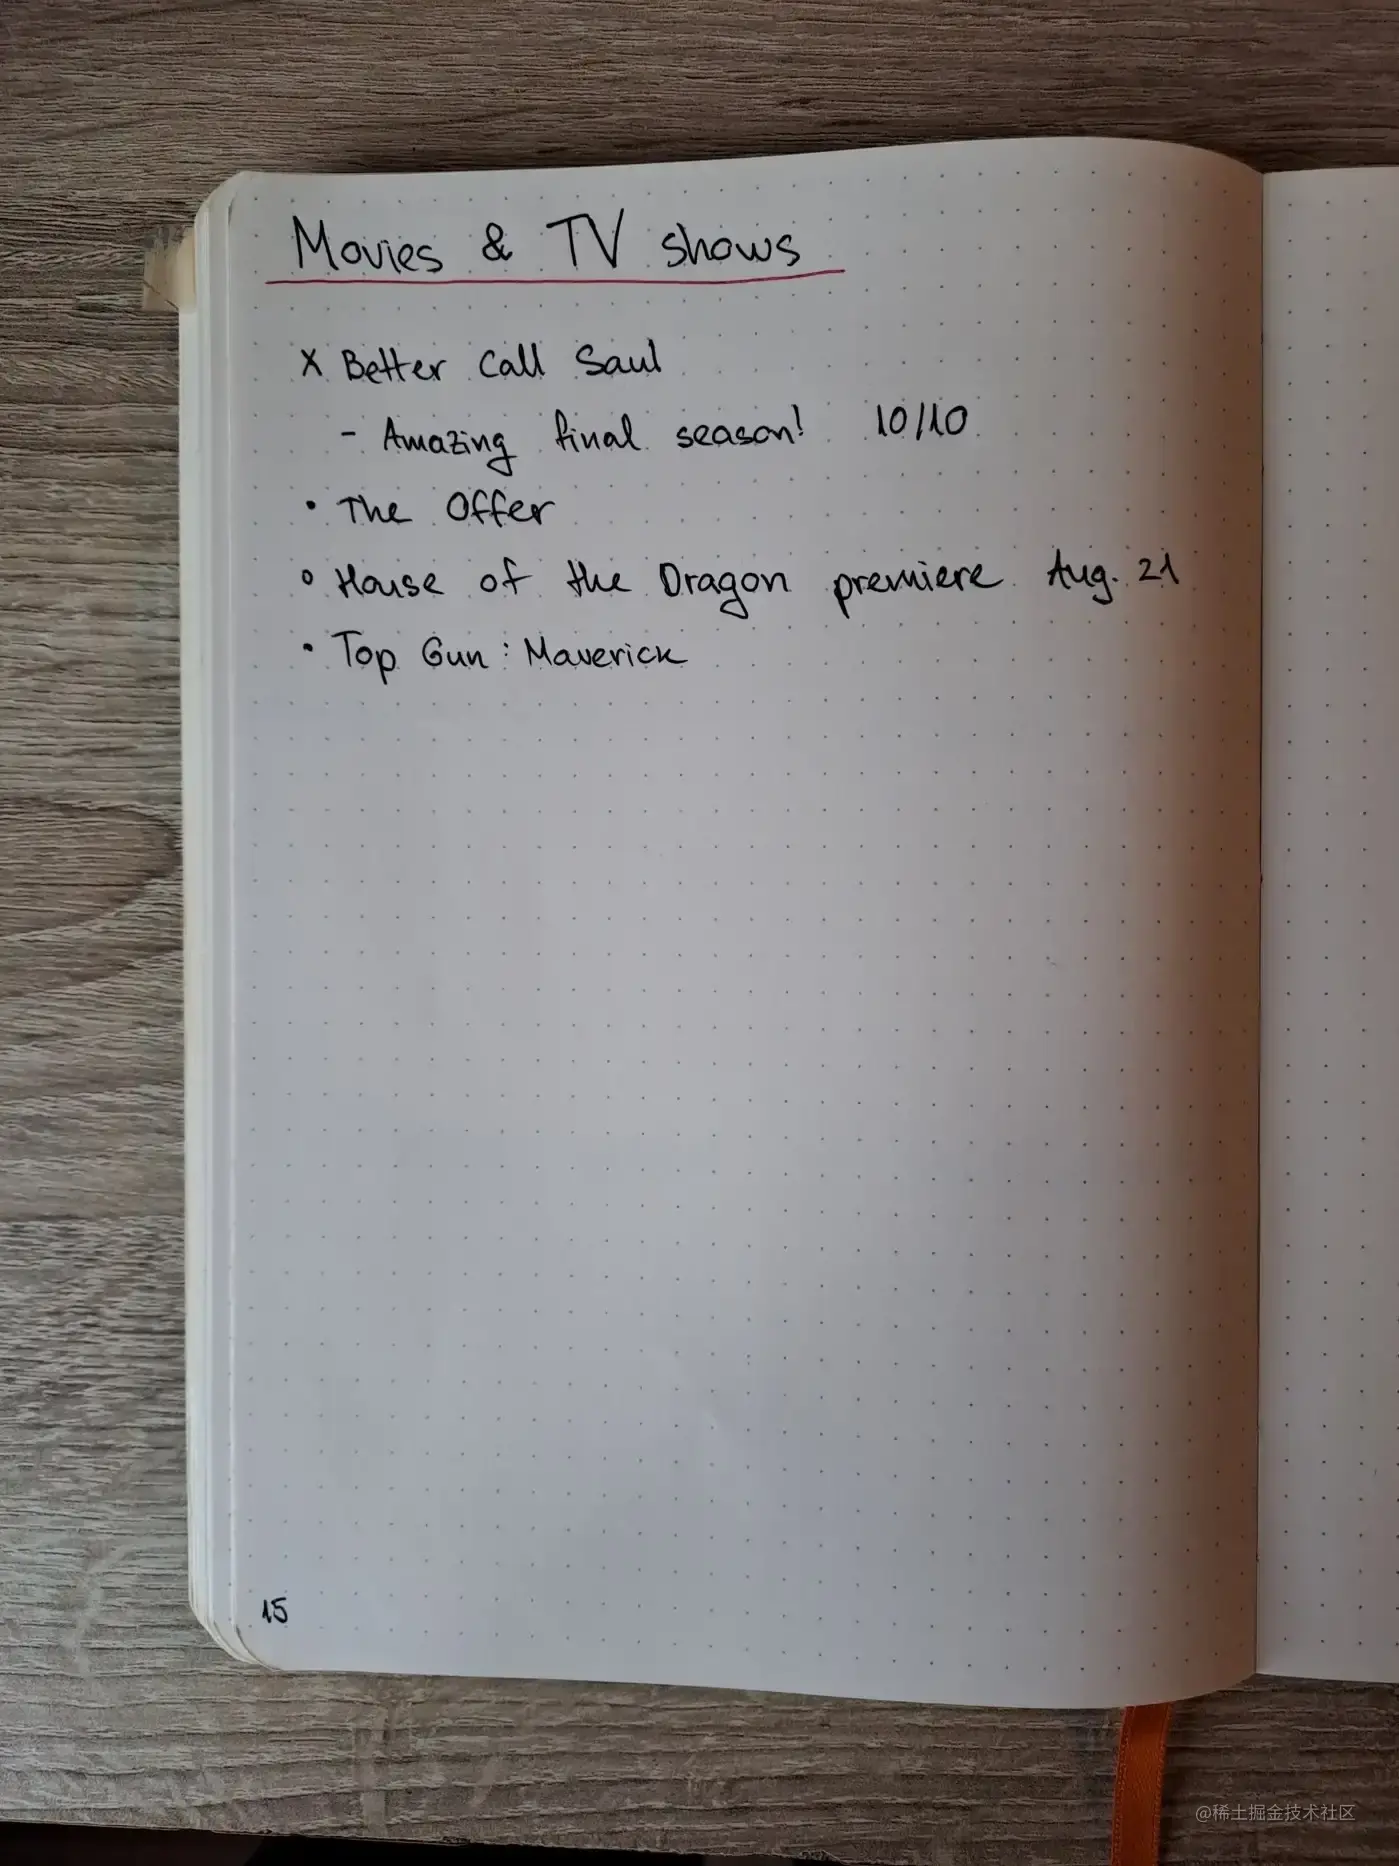 Movies & TV shows
x Better Call Saul
- Amazing final season! 10/10
• The Offer
○ House of the Dragon premiere Aug. 21
• Top Gun: Maverick
15
@稀土掘金技术社区